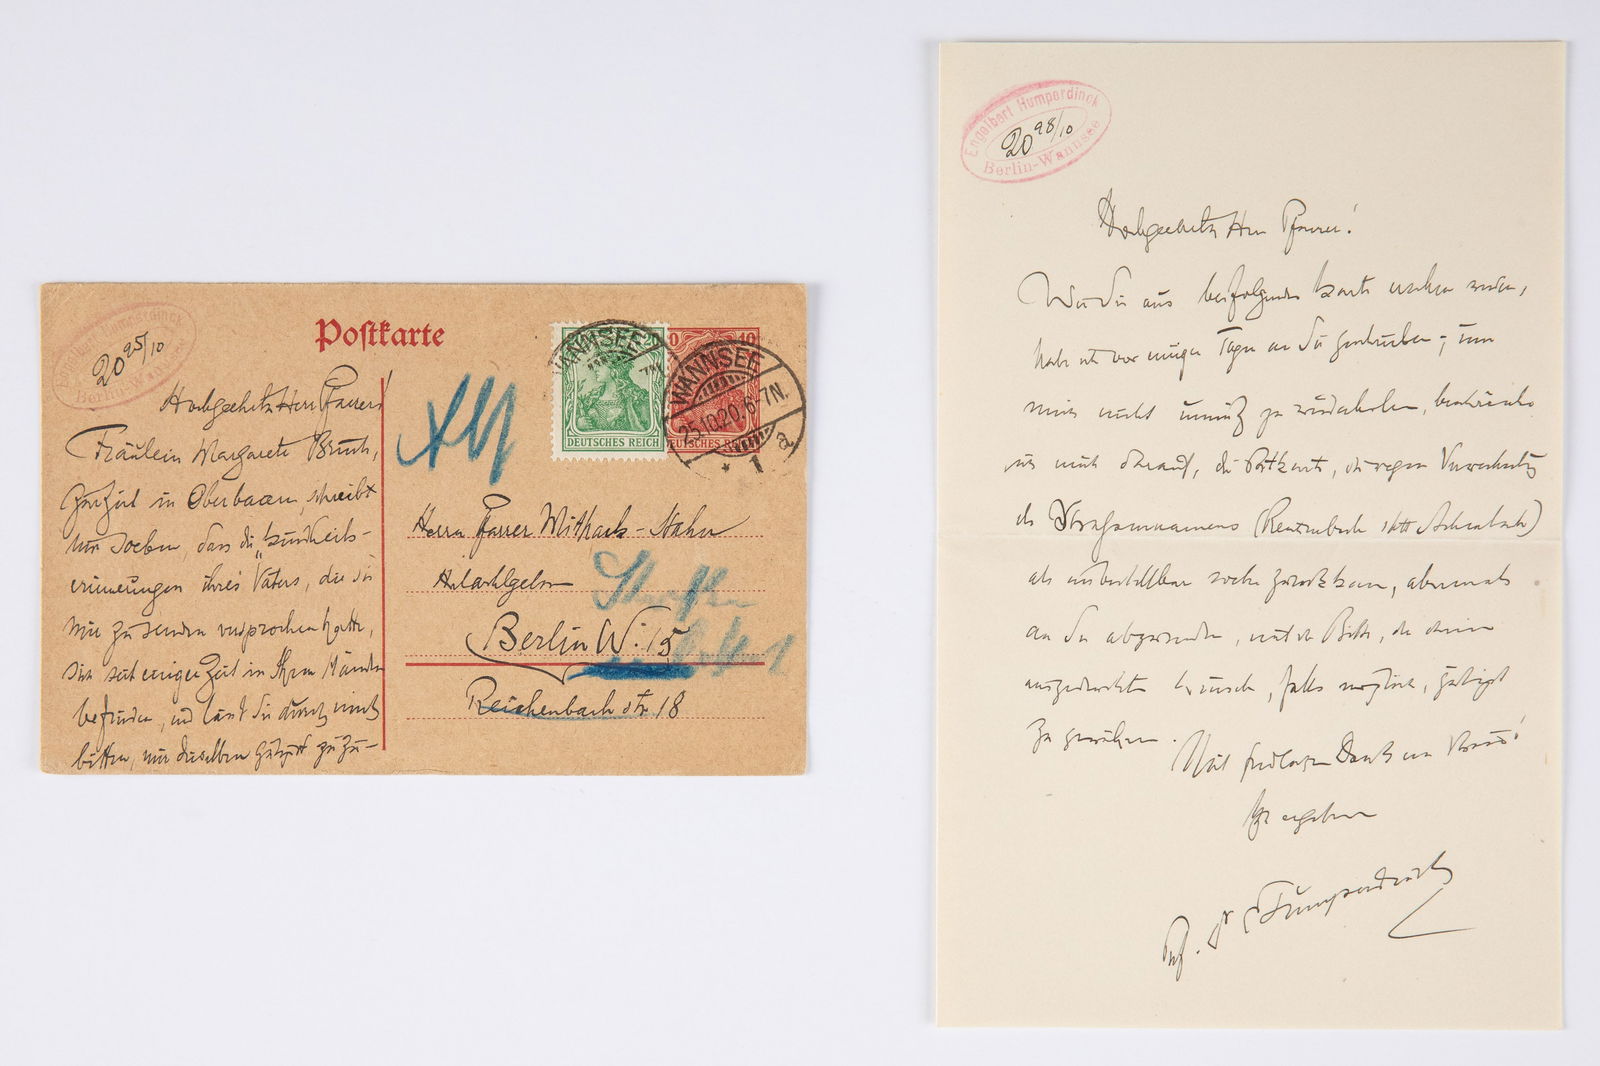 Engelbert Humperdinck
20 25/10
Berlin-Wannsee
Postkarte
WANNSEE
20
DEUTSCHES REICH
10
WANNSEE
25.10.20 6-7N.
* 1 a
Hochgeehrter Herr Pfarrer!
Fräulein Margarete Bruch,
zur Zeit in Oberbaaren, schreibt
mir soeben, dass die „Kindheits-
erinnerungen ihres Vaters, die sie
mir zu senden versprochen hatte,
sich seit einiger Zeit in Ihren Händen
befinden, und lässt Sie durch mich
bitten, mir dieselben gütigst zuzu-
Herrn Pfarrer Nahn
Berlin W. 15
Reichenbachstr 18
Engelbert Humperdinck
20 28/10
Berlin-Wannsee
Hochgeehrter Herr Pfarrer!
Wie Sie aus beifolgender Karte ersehen werden,
habe ich vor einigen Tagen an Sie geschrieben; um
mich nicht unnütz zu wiederholen, beschränke
ich mich darauf, die Postkarte, die wegen Verwechslung
des Straßennamens (Reichenbach statt Achenbach)
als unbestellbar zurückkam, abermals
an Sie abzusenden, mit der Bitte, den darin
ausgedrückten Wunsch, falls möglich, gütigst
zu gewähren.
Mit freundlichem Dank im Voraus!
Ihr ergebener
Prof. Dr E Humperdinck